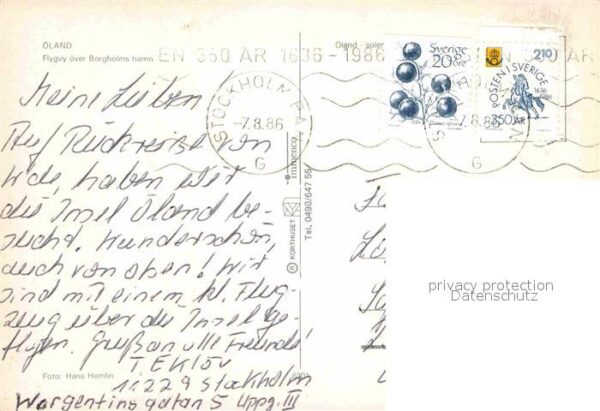 ÖLAND
Flygvy över Borgholms hamn
Öland - soler
EN 350 ÅR 1636 - 1986
Sverige
20 öre
210
POSTEN I SVERIGE
1636
1986
350 ÅR
STOCKHOLM BAN
-7.8.86
G
7.8.86
G
Meine Lieben!
Auf Rückreise von
haben wir
die Insel Öland be-
sucht. Wunderschön,
auch von oben! Wir
sind mit einem kl. Flug-
zeug über die Insel ge-
flogen. Gruß an alle Freunde!
T. Eklöv
11229 Stockholm
Wargentinsgatan 5 Uppg. III
Foto: Hans Hemlin
® KORTHUSET
Tel. 0498/647 55
privacy protection
Datenschutz